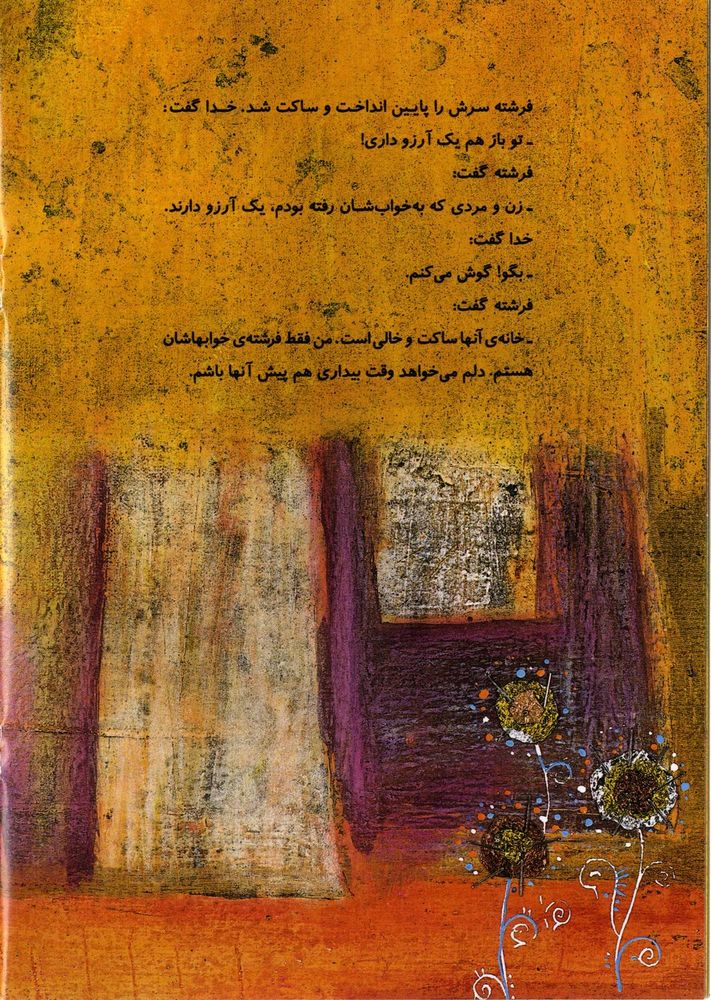 فرشته سرش را پایین انداخت و ساکت شد. خدا گفت:
ـ تو باز هم یک آرزو داری!
فرشته گفت:
ـ زن و مردی که به‌خواب‌شان رفته بودم، یک آرزو دارند.
خدا گفت:
ـ بگو! گوش می‌کنم.
فرشته گفت:
ـ خانه‌ی آنها ساکت و خالی است. من فقط فرشته‌ی خوابهاشان
هستم، دلم می‌خواهد وقت بیداری هم پیش آنها باشم.